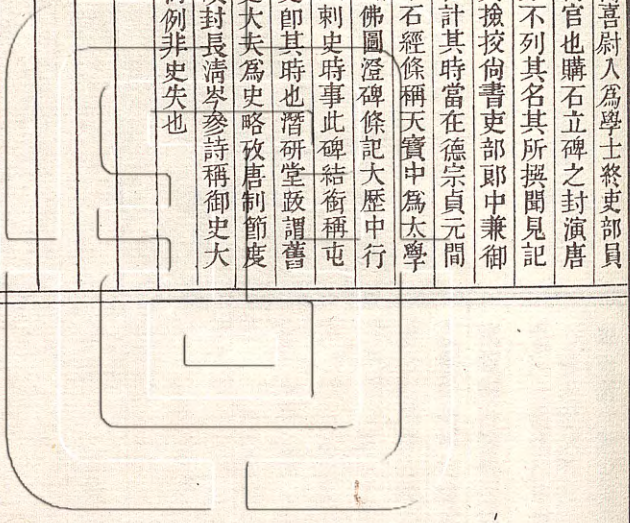 喜尉入為學士終吏部員
官也購石立碑之封演唐
不列其名其所撰聞見記
撿挍尚書吏部郞中兼御
計其時當在德宗貞元間
石經條稱天寶中爲太學
佛圖澄碑條記大歷中行
刺史時事此碑結銜稱屯
即其時也潛研堂跋謂舊
大夫爲史略攷唐制節度
封長淸岑參詩稱御史大
例非史失也